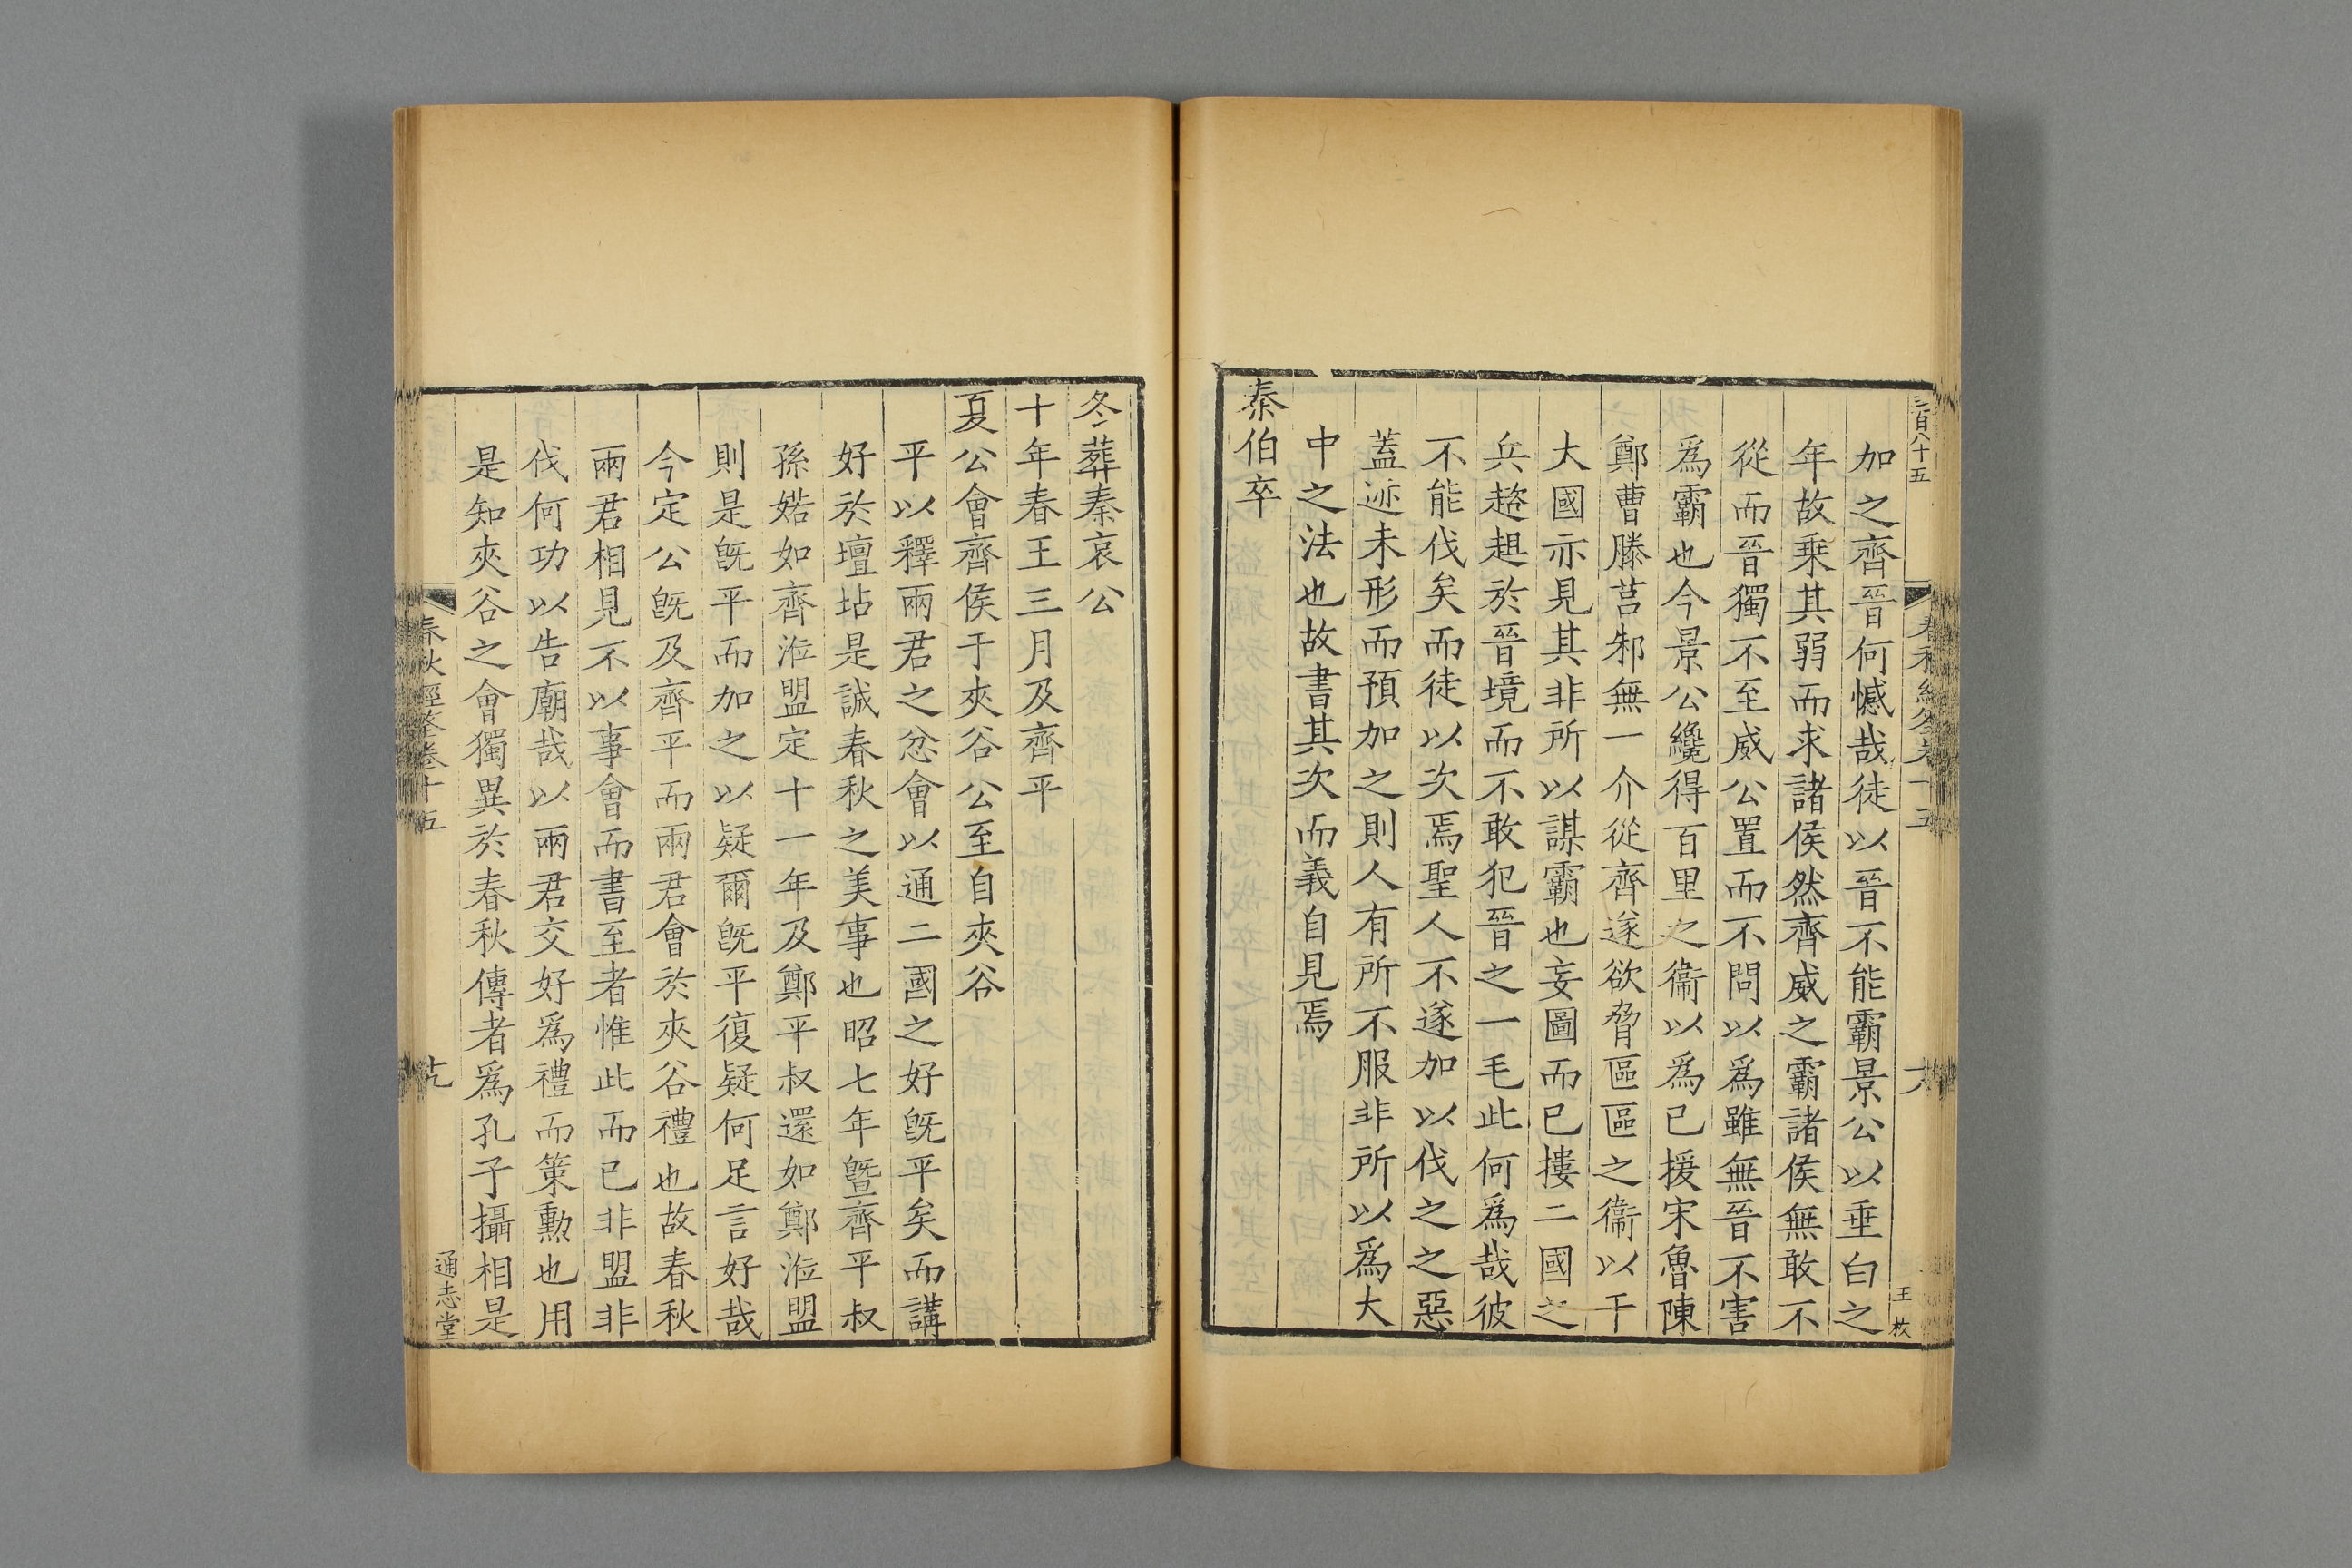 三百八十五
加之齊晉何憾哉徒以晉不能霸景公以垂白之
年故乗其弱而求諸侯然齊威之霸諸侯無敢不
從而晉獨不至威公置而不問以爲雖無晉不害
爲霸也今景公纔得百里之衞以爲已援宋魯陳
鄭曹滕莒邾無一介從齊遂欲脅區區之衞以干
大國亦見其非所以謀霸也妄圖而已摟二國之
兵趦趄於晉境而不敢犯晉之一毛此何爲哉彼
不能伐矣而徒以次焉聖人不遂加以伐之之惡
蓋迹未形而預加之則人有所不服非所以爲大
中之法也故書其次而義自見焉
秦伯卒
王枚
冬葬秦哀公
十年春王三月及齊平
夏公會齊侯于夾谷公至自夾谷
平以釋兩君之忿會以通二國之好旣平矣而講
好於壇坫是誠春秋之美事也昭七年曁齊平叔
孫婼如齊涖盟定十一年及鄭平叔還如鄭涖盟
則是旣平而加之以疑爾旣平復疑何足言好哉
今定公旣及齊平而兩君會於夾谷禮也故春秋
兩君相見不以事會而書至者惟此而已非盟非
伐何功以告廟哉以兩君交好爲禮而策勳也用
是知夾谷之會獨異於春秋傳者爲孔子攝相是
春秋經筌卷十五
通志堂